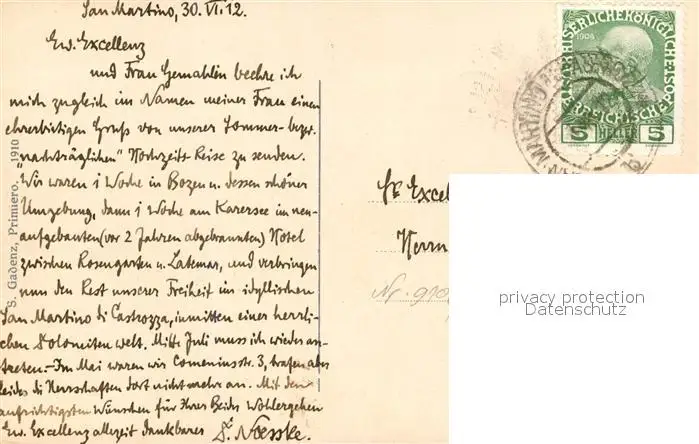 San Martino, 30. VI. 12.
Ew. Excellenz
und Frau Gemahlin beehre ich
mich zugleich im Namen meiner Frau einen
ehrerbietigen Gruß von unserer Sommer- bezw.
"nachträglichen" Hochzeits-Reise zu senden.
Wir waren 1 Woche in Bozen u. dessen schöner
Umgebung, dann 1 Woche am Karersee im neu-
aufgebauten (vor 2 Jahren abgebrannten) Hotel
zwischen Rosengarten u. Latemar, und verbringen
nun den Rest unserer Freiheit im idyllischen
San Martino di Castrozza, inmitten einer herrli-
chen Dolomiten welt. Mitte Juli muss ich wieder an-
treten. - Im Mai waren wir Comeniusstr. 3, trafen aber
leider die Herrschaften dort nicht mehr an. Mit den
aufrichtigsten Wünschen für Ihrer Beider Wohlergehen
Ew. Excellenz allezeit dankbarer Dr. Noesske.
S. Gadenz, Primiero. 1910
KAISERLICHE KÖNIGLICHE
ÖSTERREICHISCHE POST
1908
5 HELLER 5
Sr Excel
Herrn
Nr. 910
privacy protection
Datenschutz